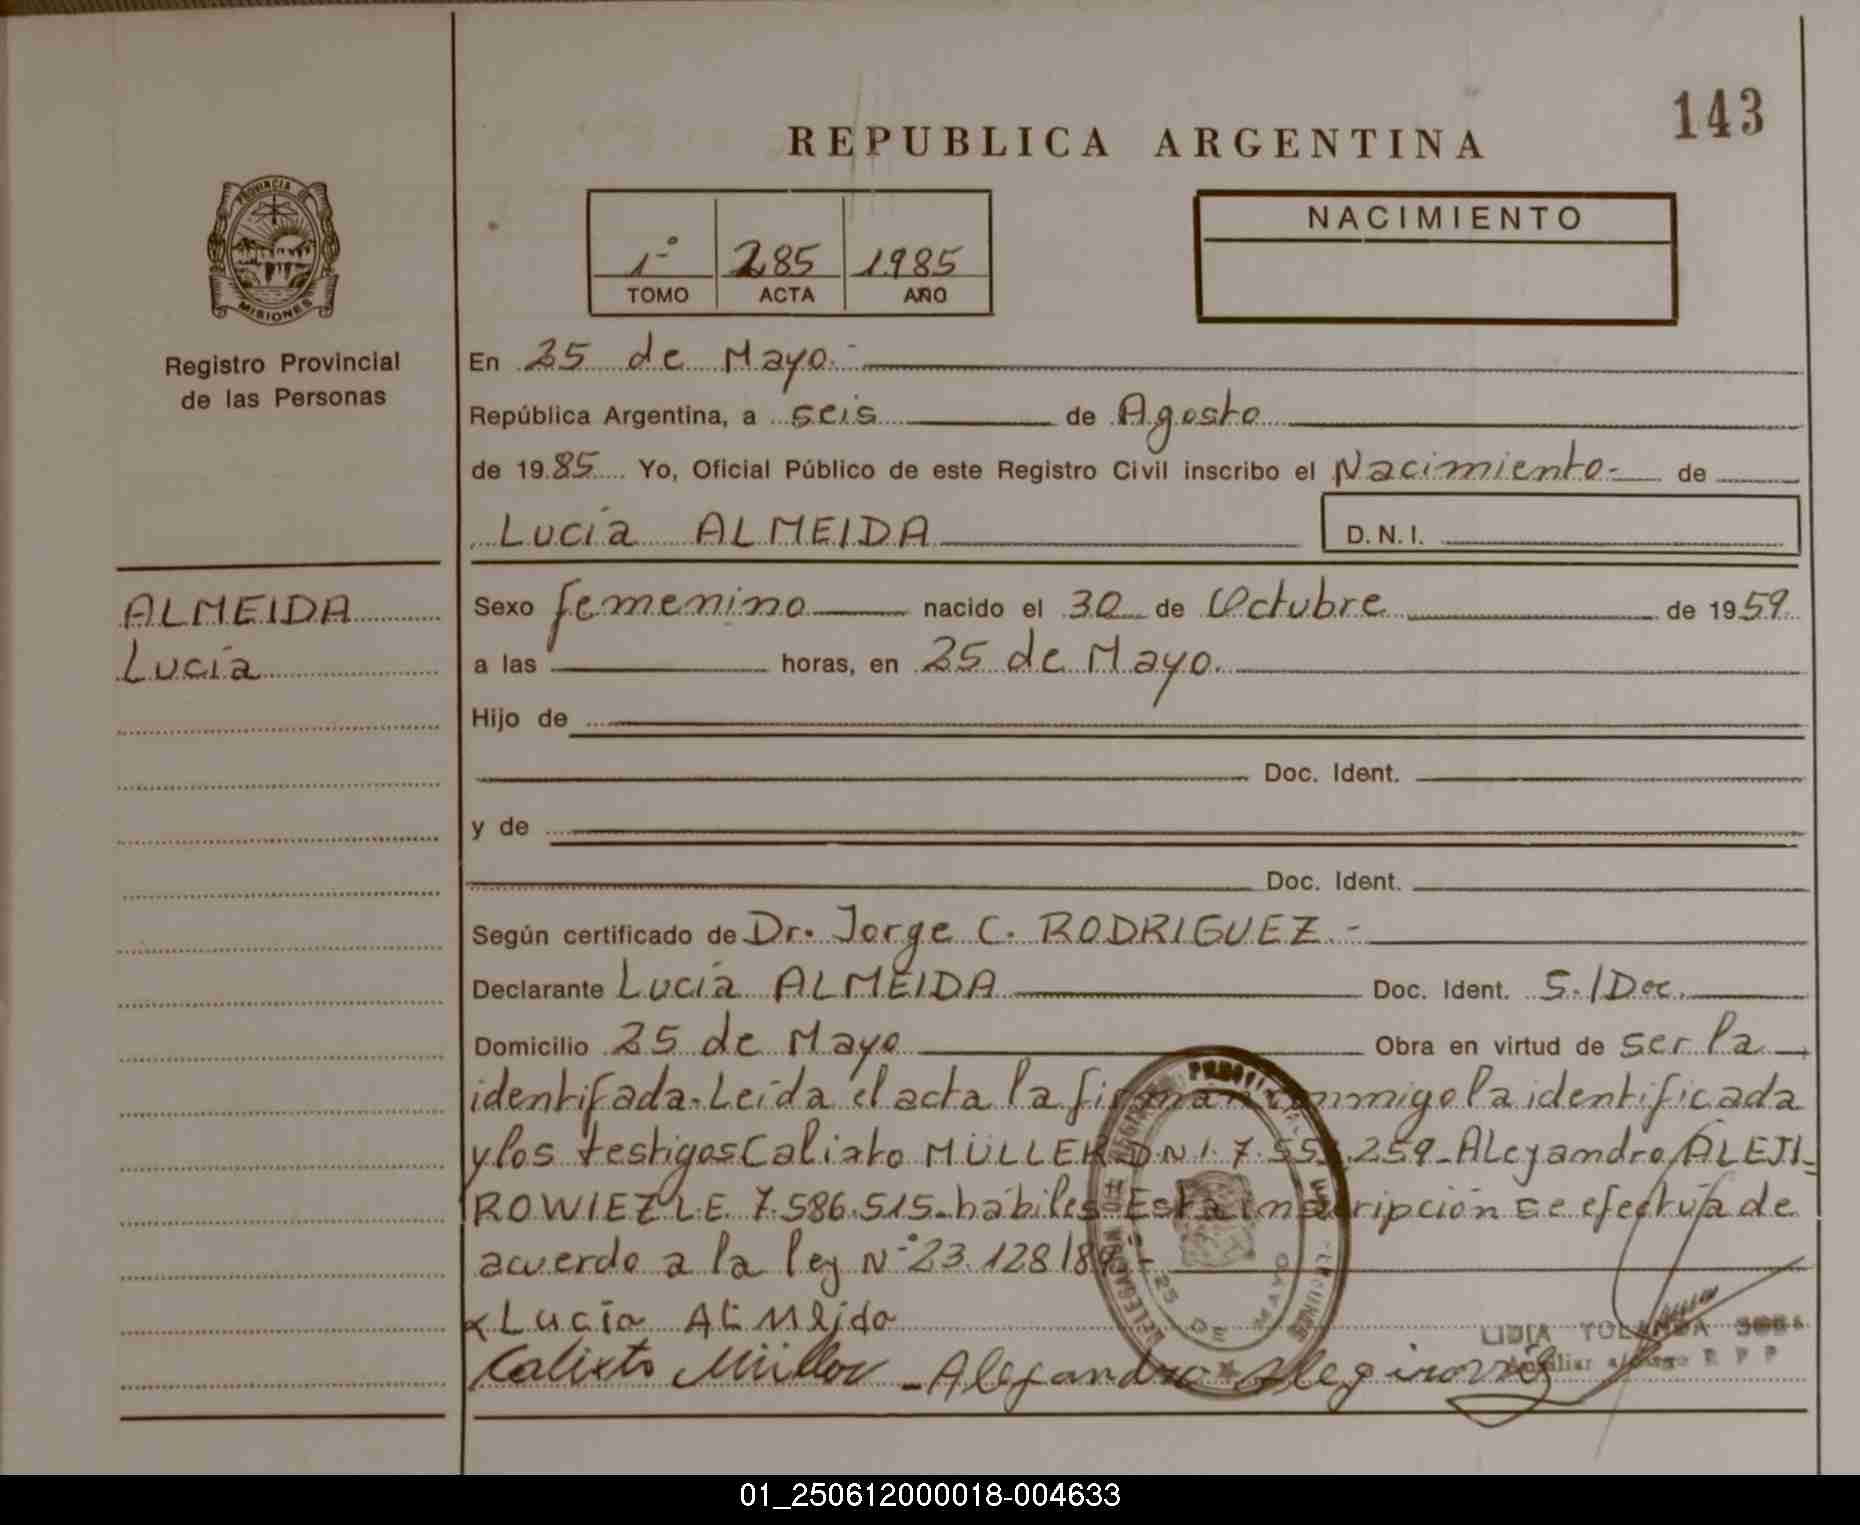 143
REPUBLICA ARGENTINA
PROVINCIA DE
MISIONES
Registro Provincial
de las Personas
1º 285 1985
TOMO ACTA AÑO
NACIMIENTO
En 25 de Mayo.-
República Argentina, a seis de Agosto
de 1985 Yo, Oficial Público de este Registro Civil inscribo el Nacimiento- de
Lucía ALMEIDA
D.N.I.
ALMEIDA
Lucía
Sexo femenino nacido el 30 de Octubre de 1959
a las horas, en 25 de Mayo.
Hijo de
Doc. Ident.
y de
Doc. Ident.
Según certificado de Dr. Jorge C. RODRIGUEZ.-
Declarante Lucía ALMEIDA Doc. Ident. S./Doc.
Domicilio 25 de Mayo Obra en virtud de ser la
identifada. Leída el acta la firman conmigo la identificada
y los testigos Calixto MÜLLER DNI. 7.55 .259- Alejandro ALEJI-
ROWIEZ L.E. 7.586.515. hábiles Esta inscripción se efectúa de
acuerdo a la ley Nº 23.128/8 .-
x Lucía ALMEjda
Calixto Müller - Alejandro
LIDIA YOLANDA
Auxiliar a/cargo R P P
25 DE MAYO
01_250612000018-004633